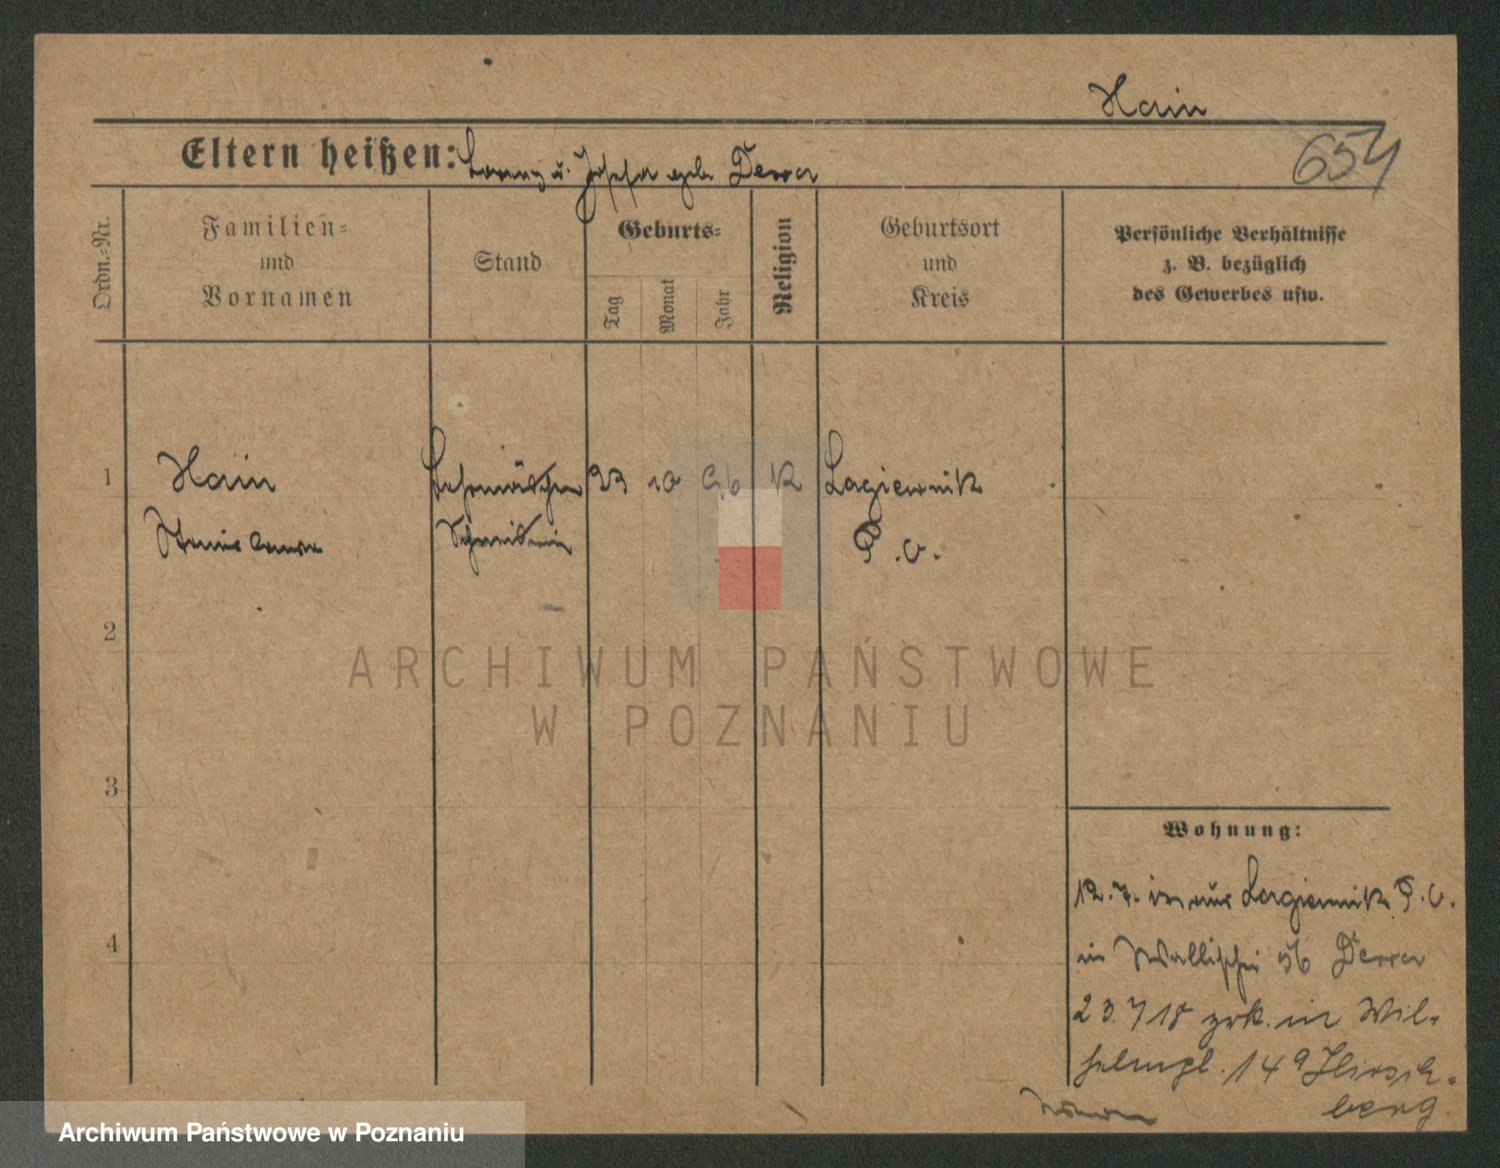 Hain
654
Eltern heißen: Lorenz u. Josefa geb. Derra
Ordn.-Nr.
Familien-
und
Vornamen
Stand
Geburts-
Tag
Monat
Jahr
Religion
Geburtsort
und
Kreis
Persönliche Verhältnisse
z. B. bezüglich
des Gewerbes usw.
1
Hain
23 10 96 K Lagiewnik
Stanislawa
P. O.
2
ARCHIWUM PAŃSTWOWE
W POZNANIU
3
Wohnung:
12.7. aus Lagiewnik P. O.
4
in Wallischei 56 Derra
23.7 18 zrk. in Wil-
helmpl. 14a Hirsch-
berg.
Archiwum Państwowe w Poznaniu